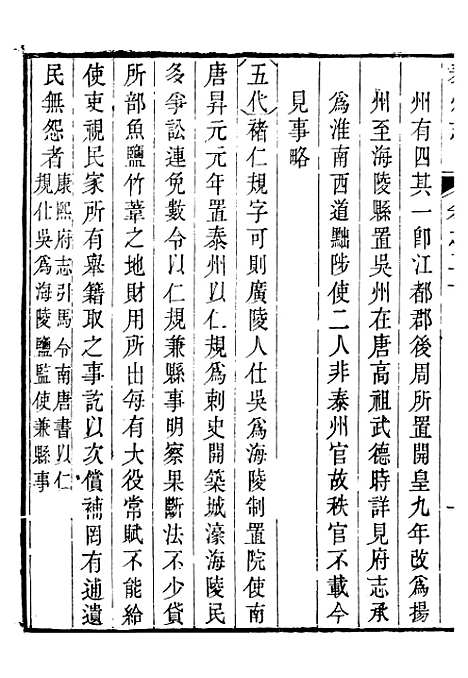 州有四其一卽江都郡後周所置開皇九年改爲揚
州至海陵縣置吳州在唐高祖武德時詳見府志承
爲淮南西道黜陟使二人非泰州官故秩官不載今
見事略
五代褚仁規字可則廣陵人仕吳爲海陵制置院使南
唐昇元元年置泰州以仁規爲刺史開築城濠海陵民
多爭訟連免數令以仁規兼縣事明察果斷法不少貸
所部魚鹽竹葦之地財用所出每有大役常賦不能給
使吏視民家所有舉籍取之事訖以次償補罔有逋遺
民無怨者康熙府志引馬令南唐書以仁
規仕吳爲海陵鹽監使兼縣事